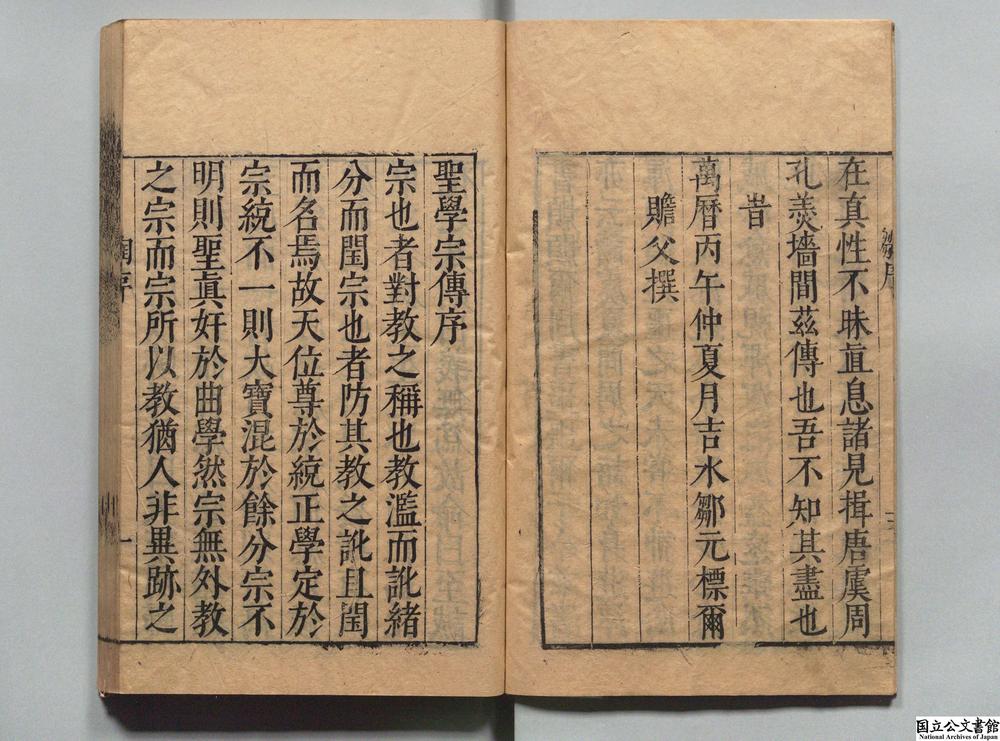 在真性不昧直息諸見揖唐虞周
孔羮墻間茲傳也吾不知其盡也
旹
萬曆丙午仲夏月吉水鄒元標爾
瞻父撰
聖學宗傳序
宗也者對教之稱也教濫而訛緒
分而閏宗也者防其教之訛且閏
而名焉故天位尊於統正學定於
宗統不一則大寶混於餘分宗不
明則聖眞奸於曲學然宗無外教
之宗而宗所以教猶人非異跡之
一
国立公文書館
National Archives of Japan